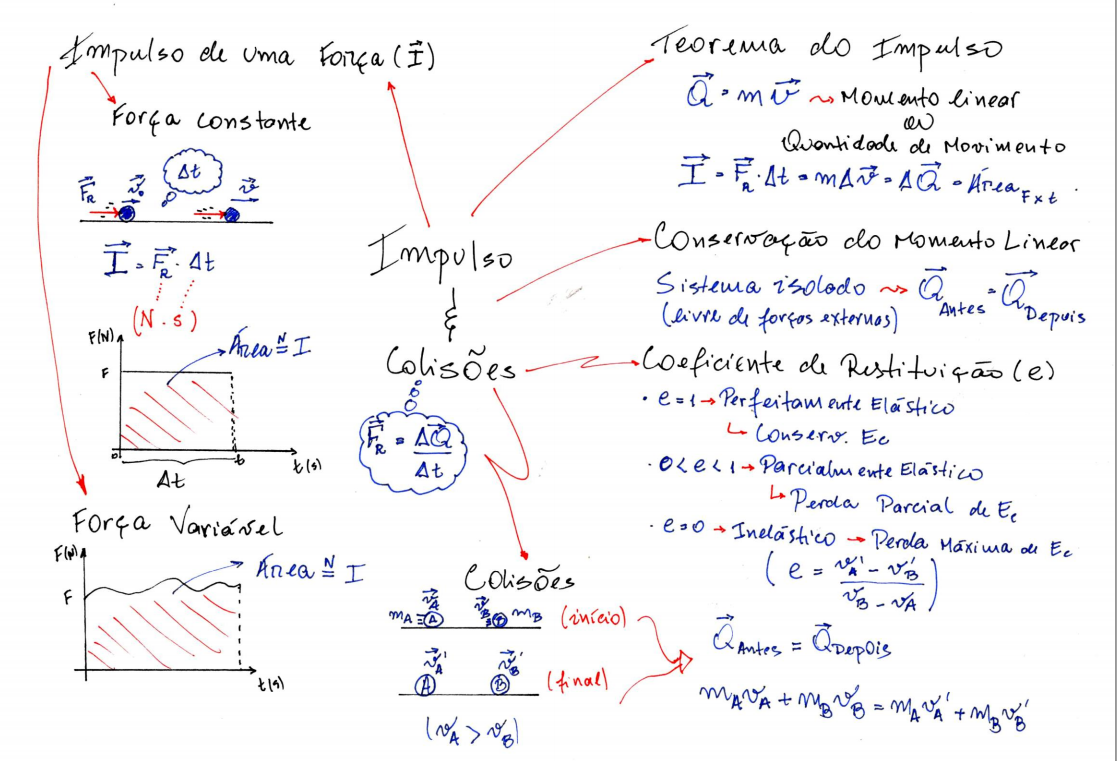 Impulso de uma Força (I⃗)
Força constante
Δt
F⃗_R v⃗₀ v⃗
I⃗ = F⃗_R · Δt
(N · s)
F(N)
Área ≝ᴺ I
F
0 t t(s)
Δt
Força Variável
F(N)
Área ≝ᴺ I
F
t(s)
Impulso
Colisões
F⃗_R = ΔQ⃗/Δt
Colisões
m_A = A v⃗_A v⃗_B = B m_B (início)
v⃗_A' v⃗_B'
A B (final)
(v_A > v_B)
Teorema do Impulso
Q⃗ = m v⃗ → Momento linear
ou
Quantidade de Movimento
I⃗ = F⃗_R · Δt = m Δv⃗ = ΔQ⃗ = Área_F×t.
Conservação do Momento Linear
Sistema isolado → Q⃗_Antes = Q⃗_Depois
(livre de forças externas)
Coeficiente de Restituição (e)
· e = 1 → Perfeitamente Elástico
↳ Conserv. Ec
· 0 < e < 1 → Parcialmente Elástico
↳ Perda Parcial de Ec
· e = 0 → Inelástico → Perda Máxima de Ec
(e = (v_A' - v_B')/(v_B - v_A))
Q⃗_Antes = Q⃗_Depois
m_A v_A + m_B v_B = m_A v_A' + m_B v_B'